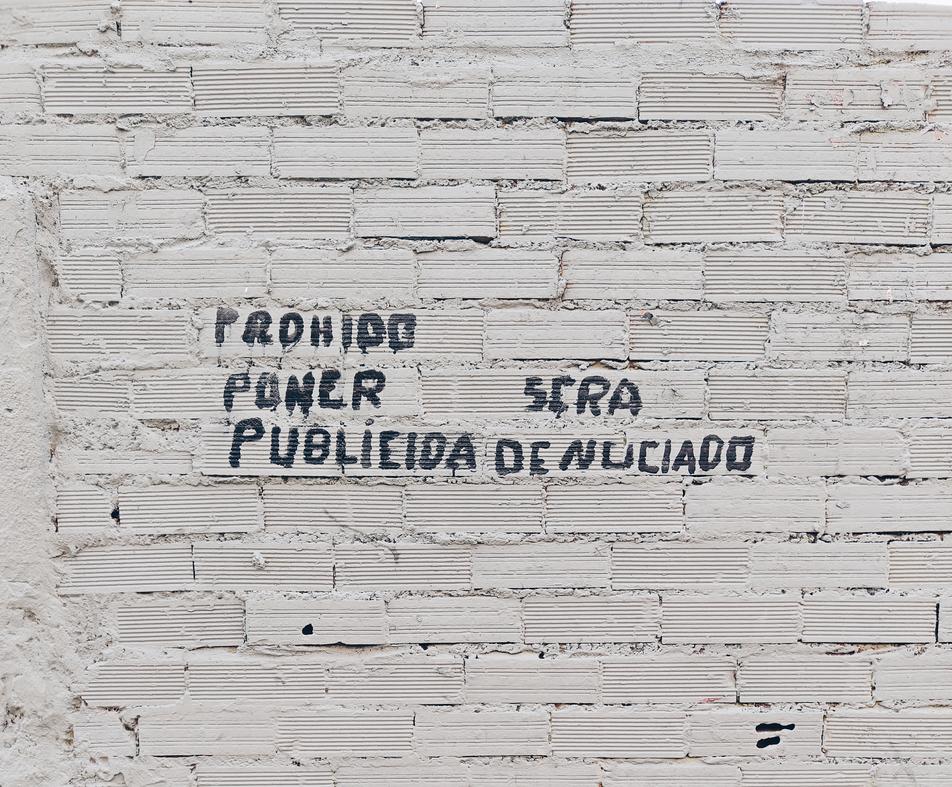 PROHIDO
PONER SERA
PUBLICIDA DENUCIADO